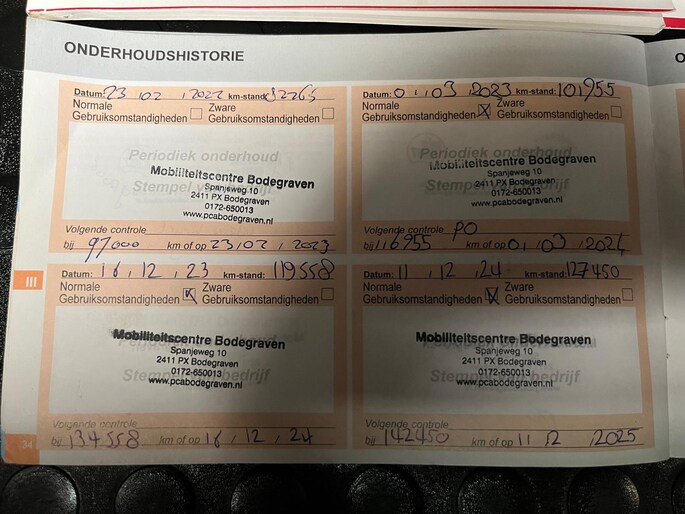 ONDERHOUDSHISTORIE
Datum: 23 02 , 2022 km-stand: 82265
Normale Gebruiksomstandigheden
Zware Gebruiksomstandigheden
Periodiek onderhoud
Mobiliteitscentre Bodegraven
Stempel bedrijf
Spanjeweg 10
2411 PX Bodegraven
0172-650013
www.pcabodegraven.nl
Volgende controle
bij 97000 km of op 23, 02 , 2023
Datum: 01 , 03 , 2023 km-stand: 101955
Normale Gebruiksomstandigheden
Zware Gebruiksomstandigheden
Periodiek onderhoud
Mobiliteitscentre Bodegraven
Stempel bedrijf
Spanjeweg 10
2411 PX Bodegraven
0172-650013
www.pcabodegraven.nl
Volgende controle PO
bij 116955 km of op 01 , 03 , 2024
III
Datum: 16 , 12 , 23 km-stand: 119558
Normale Gebruiksomstandigheden
Zware Gebruiksomstandigheden
Mobiliteitscentre Bodegraven
Spanjeweg 10
2411 PX Bodegraven
Stempel bedrijf
0172-650013
www.pcabodegraven.nl
Volgende controle
bij 134558 km of op 16 , 12 , 24
Datum: 11 , 12 , 24 km-stand: 127450
Normale Gebruiksomstandigheden
Zware Gebruiksomstandigheden
Mobiliteitscentre Bodegraven
Spanjeweg 10
2411 PX Bodegraven
Stempel bedrijf
0172-650013
www.pcabodegraven.nl
Volgende controle
bij 142450 km of op 11 , 12 , 2025
34